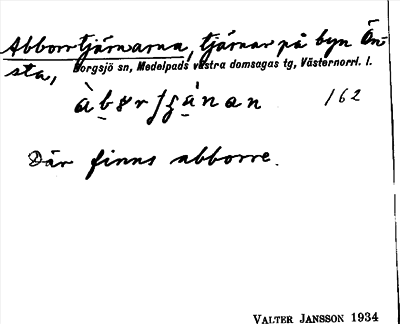 Abborrtjärnarna, tjärnar på byn Ön-
sta, Borgsjö sn, Medelpads västra domsagas tg, Västernorrl. l.
162
Där finns abborre.
VALTER JANSSON 1934